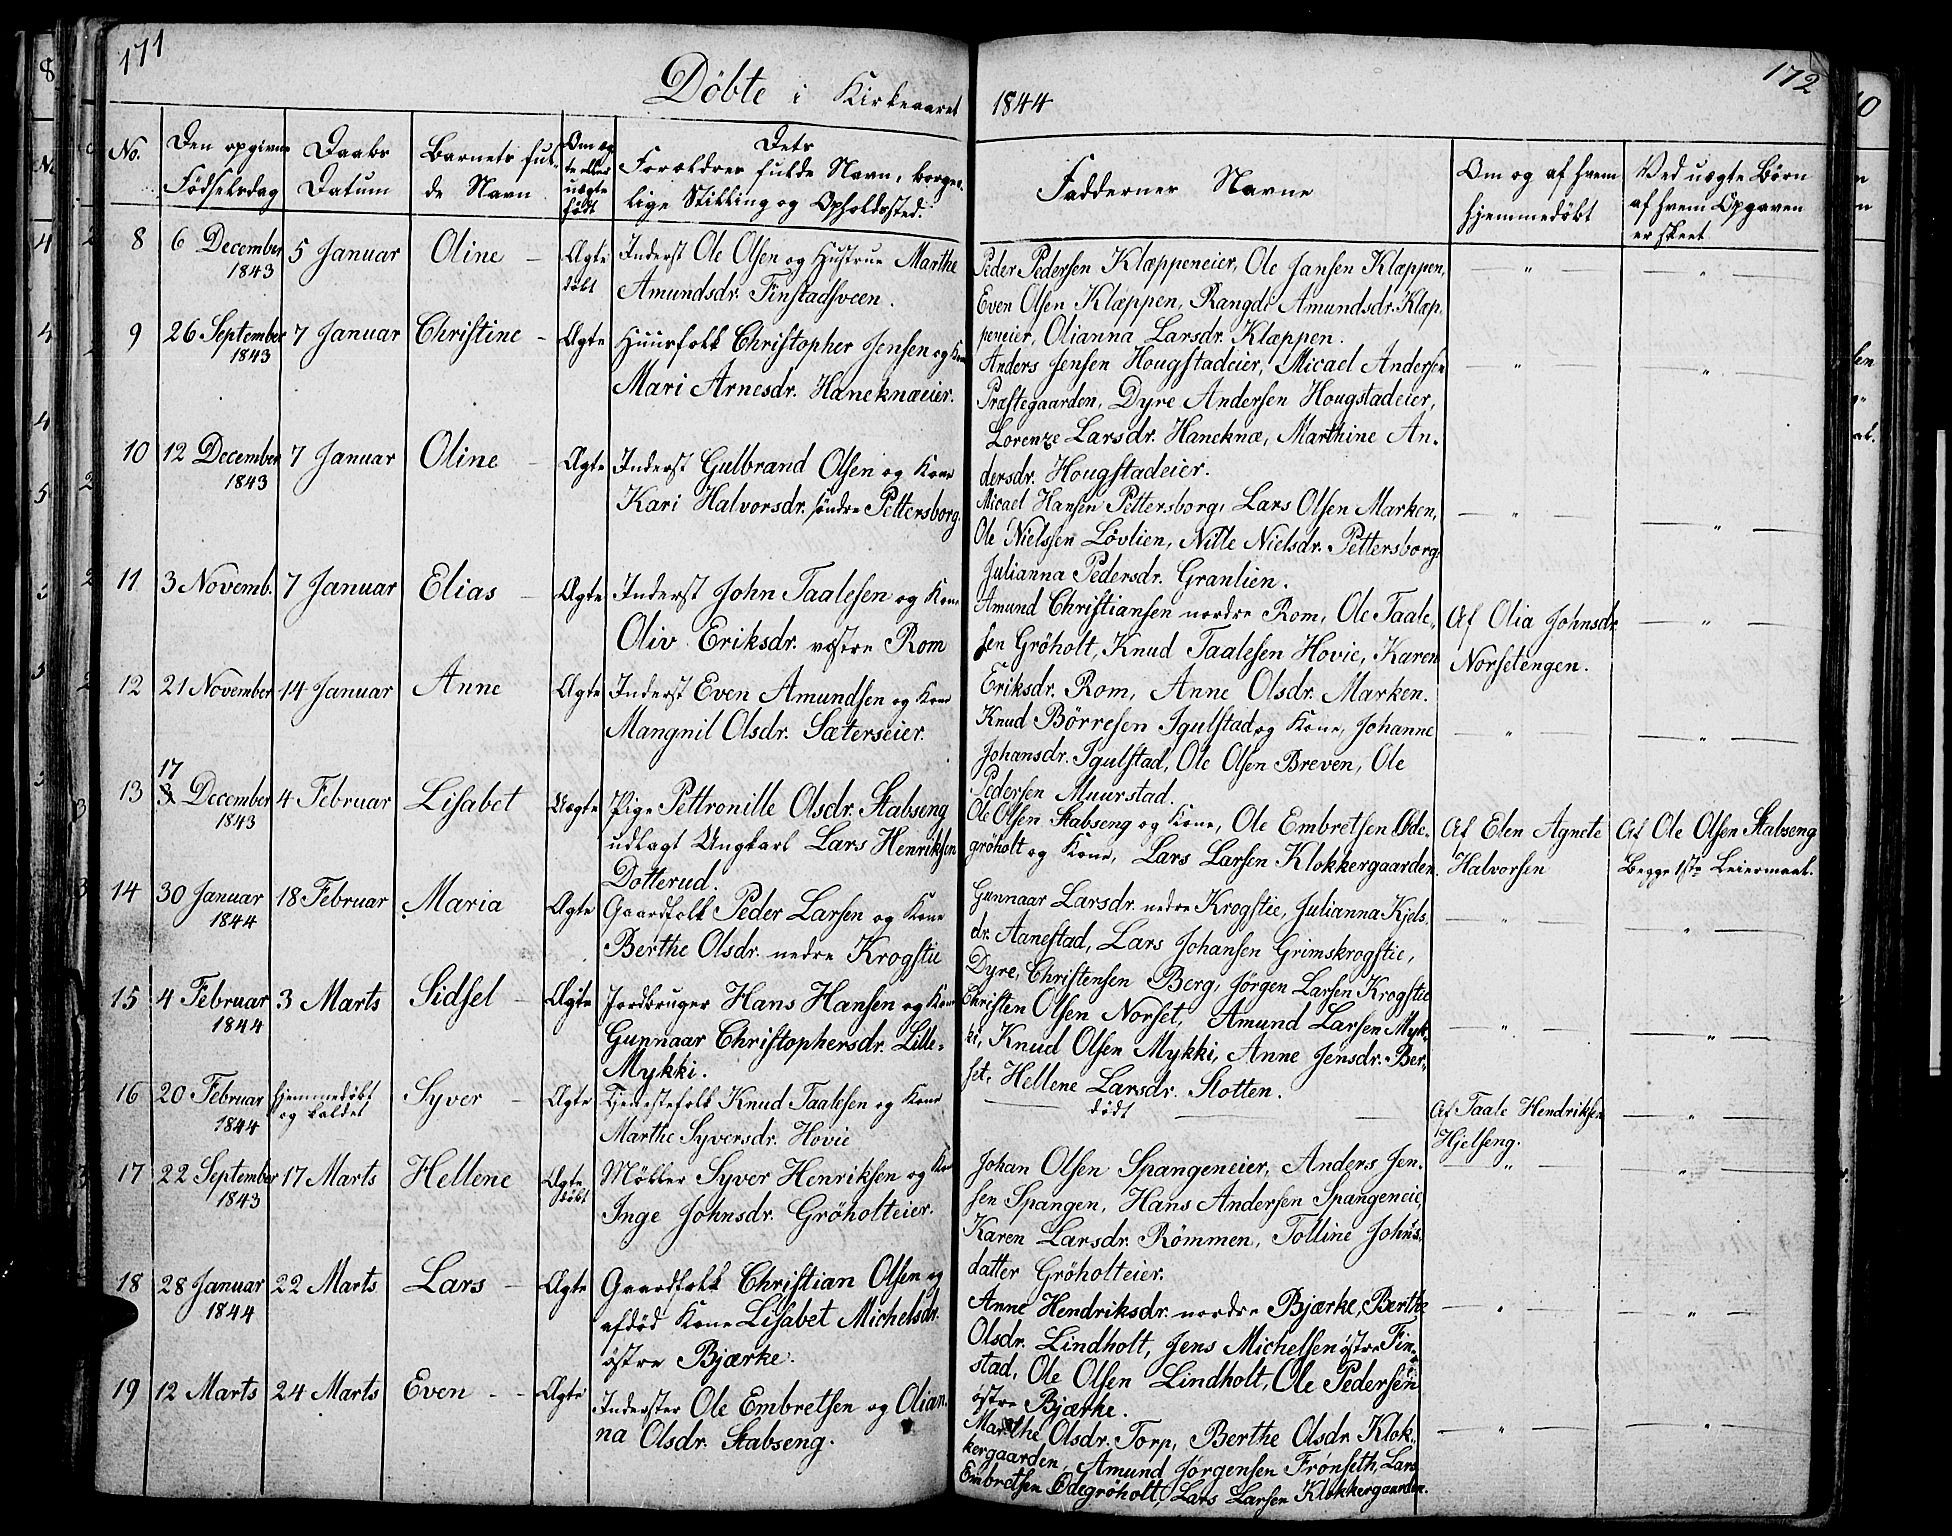 171
Döbte i Kirkeaaret
No.
Den opgivne Födselsdag
Daabs Datum
Barnets fulde Navn
Om ægte eller uægte födt
Dets Forældres fulde Navn, borgerlige Stilling og Opholdssted.
8 6 December 1843 5 Januar Oline – Ægte födt Inderst Ole Olsen og Hustrue Marthe
Amundsdr. Finstadsveen.
9 26 September 1843 7 Januar Christine – Ægte Huusfolk Christopher Jensen og Kone
Mari Arnesdr. Haneknæeier.
10 12 December 1843 7 Januar Oline – Ægte Inderst Gulbrand Olsen og Kone
Kari Halvorsdr. söndre Pettersborg.
11 3 Novemb. 7 Januar Elias – Ægte Inderst John Taalesen og Kone
Oliv Eriksdr. vestre Rom
12 21 November 14 Januar Anne Ægte Inderst Even Amundsen og Kone
Mangnil Olsdr. Sæterseier.
13 17 December 1843 4 Februar Lisabet Uægte Pige Pettronille Olsdr. Stabseng
udlagt Ungkarl Lars Henriksen
Dotterud.
14 30 Januar 1844 18 Februar Maria Ægte Gaardfolk Peder Larsen og Kone
Berthe Olsdr. nedre Krogstie
15 4 Februar 1844 3 Marts Sidsel – Ægte Jordbruger Hans Hansen og Kone
Gunnaar Christophersdr. Lille-
Mykki.
16 20 Februar 1844 hjemmedöbt og kaldet Syver – Ægte Tjenestefolk Knud Taalesen og Kone
Marthe Syversdr. Hovie
17 22 September 1843 17 Marts Hellene Ægte födt Möller Syver Henriksen og Kone
Inge Johnsdr. Gröholteier.
18 28 Januar 1844 22 Marts Lars – Ægte Gaardfolk Christian Olsen og
afdöd Kone Lisabet Michelsdr.
östre Bjærke.
19 12 Marts 24 Marts Even – – Ægte Inderster Ole Embretsen og Olian-
na Olsdr. Stabseng.
172
1844
Faddernes Navne
Om og af hvem hjemmedöbt
Ved uægte Börn af hvem Opgaven er skeet
Peder Pedersen Klæppeneier, Ole Jansen Klæppen,
Even Olsen Klæppen, Rangdi Amundsdr. Klæp-
peneier, Olianna Larsdr. Klæppen.
Anders Jensen Hougstadeier, Micael Andersen
Præstegaarden, Dyre Andersen Hougstadeier,
Lorenze Larsdr. Haneknæ, Marthine An-
dersdr. Hougstadeier.
Micael Hansen Pettersborg, Lars Olsen Marken,
Ole Nielssen Lövlien, Nille Nielsdr. Pettersborg
Julianna Pedersdr. Granlien.
Amund Christiansen nordre Rom, Ole Taale-
sen Gröholt, Knud Taalesen Hovie, Karen
Eriksdr. Rom, Anne Olsdr. Marken.
Af Olia Johnsdr.
Norsetengen.
Knud Börresen Igulstad og Kone, Johanne
Johansdr. Igulstad, Ole Olsen Breven, Ole
Pedersen Muurstad.
Ole Olsen Stabseng og Kone, Ole Embretsen Öde-
gröholt og Kone, Lars Larsen Klokkergaarden.
Af Elen Agnete
Halvorsen
Af Ole Olsen Stabseng
Begge 1ste Leiermaal.
Gunnaar Larsdr. nedre Krogstie, Julianna Kjels-
dr. Aanestad, Lars Johansen Grimskrogstie,
Dyre Christensen Berg, Jörgen Larsen Krogstie
Christen Olsen Norset, Amund Larsen Myk-
ki, Knud Olsen Mykki, Anne Jensdr. Ber-
set, Hellene Larsdr. Slotten.
dödt
Af Taale Hendriksen
Hjelseng.
Johan Olsen Spangeneier, Anders Jen-
sen Spangen, Hans Andersen Spangeneie
Karen Larsdr. Römmen, Tolline Johns-
datter Gröholteier.
Anne Hendriksdr. nordre Bjærke, Berthe
Olsdr. Lindholt, Jens Michelsen östre Fin-
stad, Ole Olsen Lindholt, Ole Pedersen
östre Bjærke.
Marthe Olsdr. Torp, Berthe Olsdr. Klok-
kergaarden, Amund Jörgensen Fronseth, Lars
Embretsen Ödegröholt, Lars Larsen Klokkergaarden.